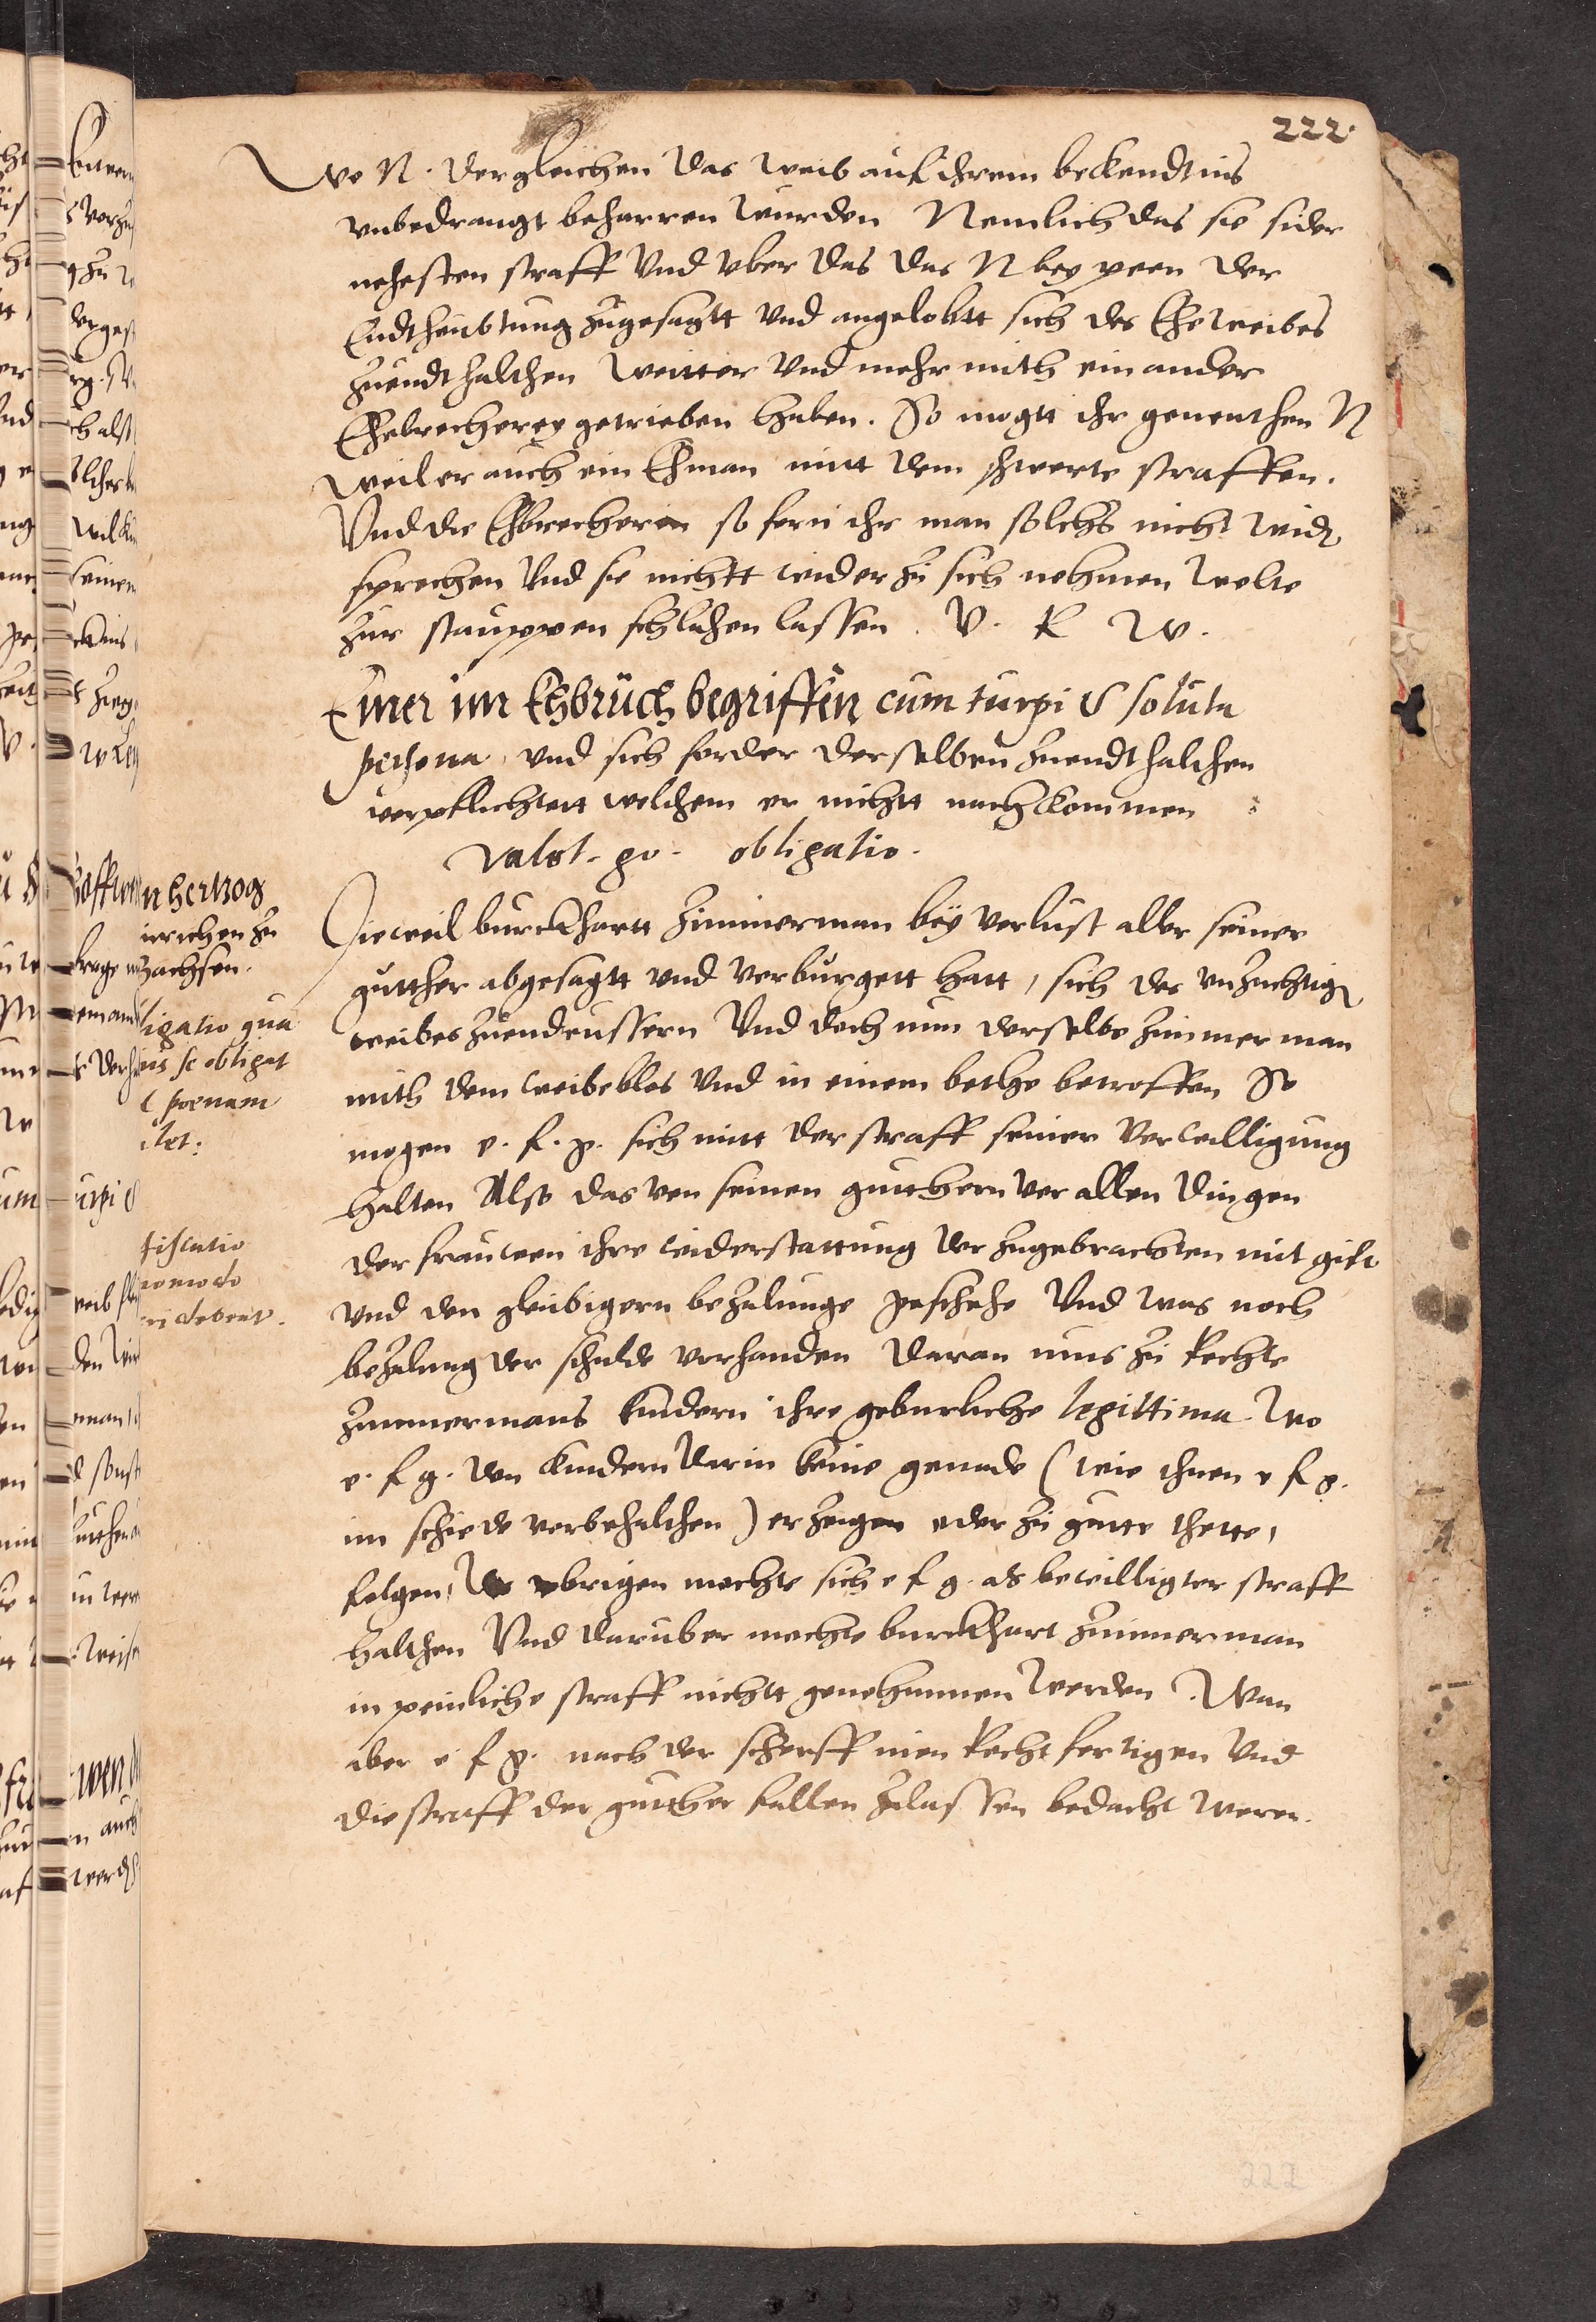 222.
Wo N. dergleichen das weib auf ihrem beckendtnis
unbedrangt beharren wurden Nemlich das sie sider
nehesten straff Und uber das das N bey peen der
Endtheubtung zugesagtt und angelobtt sich des Eheweibes
zuendthalthen weitter Und mehr mith ein ander
Ehebrecherey getrieben haben. So mogtt ihr genenthen N
weil er auch ein Ehman mitt dem schwerte straffen.
Und die Ehbrecherin so fern ihr man solchs nicht wid
sprechen Und sie nichtt wider zu sich nehmen wolte
zur stauppen schlahen lassen. V. R W.
Einer im Ehbruch begriffen cum turpi & soluta
persona, und sich forder derselben zuendthalthen
verpflichtett welchem er nichtt nachkommen
valet. po. obligatio.
Dieweil burckhartt Zimmerman bey verlust aller seiner
gutther abgesagtt und verburgett hatt, sich des unzuchtig
weibes zuendeussern Und doch nun derselbe Zimmerman
mith dem weibe blos Und in einem bethe betroffen So
mogen e. f. g. sich mitt der straff seiner verwilligung
halten Also das von seinen gutthern vor allen dingen
der frauwen ihre widerstattung der zugebrachten mitgift
und den gleubigern bezalunge geschehe Und was noch
bezalung der schulde vorhanden daran mus zu Rechte
Zimmermans kindern ihre geburliche legittima. Wo
e. f g. den kindern darin keine genade (wie ihnen e f g.
im schiede vorbehalthen) erzeigen oder zu gutte thette,
folgen, ubrigen mochte sich e f g. als bewilligter straff
halthen Und daruber mochte burckhart Zimmerman
in peinliche straff nichtt genohmmen werden. Wan
aber e f g. nach der scherff inen Recht fertigen Und
die straff der gutther fallen zulassen bedacht weren.
n hertzog
inrichen zu
zachsen.
ligatio qua
nis se obligat
poenam
let.
fiscatio
nomodo
ri debeat.